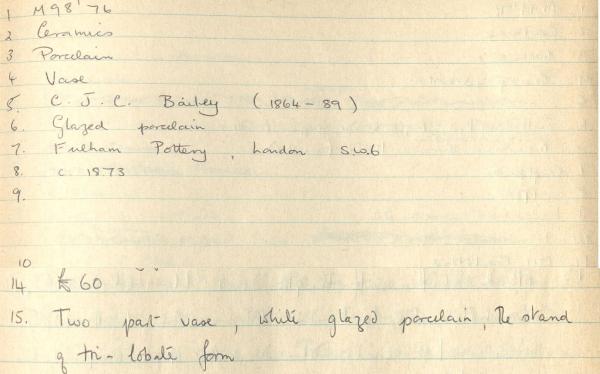 1 M98'76
2 Ceramics
3 Porcelain
4 Vase
5. C. J. C. Bailey (1864-89)
6. Glazed porcelain
7. Fulham Pottery, London S.W.6
8. c. 1873
9.
10
14 £60
15. Two part vase, white glazed porcelain, the stand
of tri-lobate form